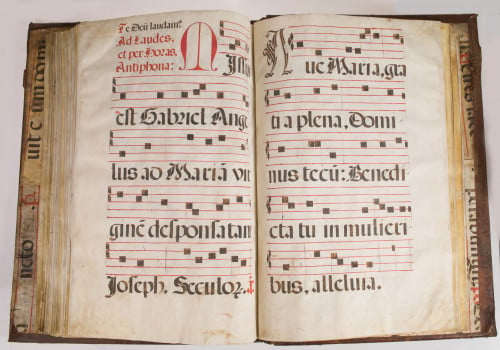 Te Deū laudam⁹.
Ad Laudes,
et per Horas,
Antiphona:
Missus
est Gabriel Ange
lus ad Mariā vir
ginē desponsatam
Joseph. Seculor.
Ave Maria, gra
ti a plena, Domi
nus tecū: Benedi
cta tu in mulieri
bus, alleluia.